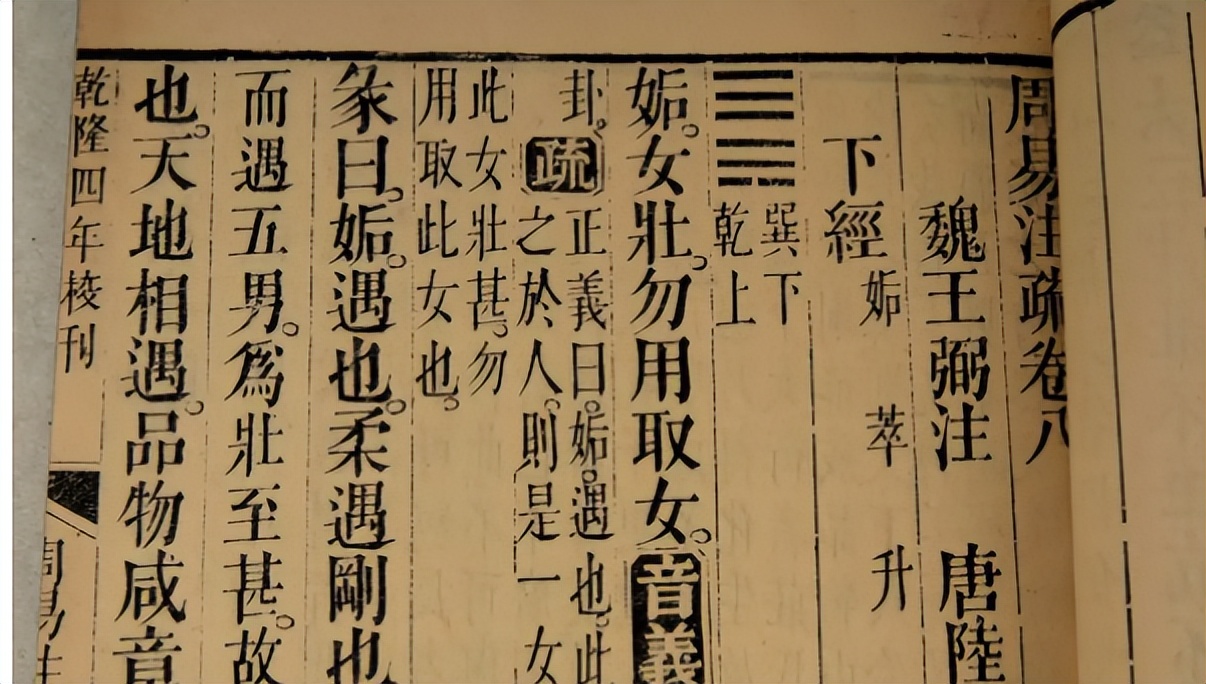 周易注疏卷八
魏王弼注 唐陸
下經 姤 萃 升
䷫ 巽下
乾上
姤。女壯。勿用取女。音義
卦。疏 正義曰。姤。遇也。此
之於人。則是一女
此女壯甚。勿
用取此女也。
彖曰。姤。遇也。柔遇剛也
而遇五男。爲壯至甚。故
也。天地相遇。品物咸章
乾隆四年校刊 周易注